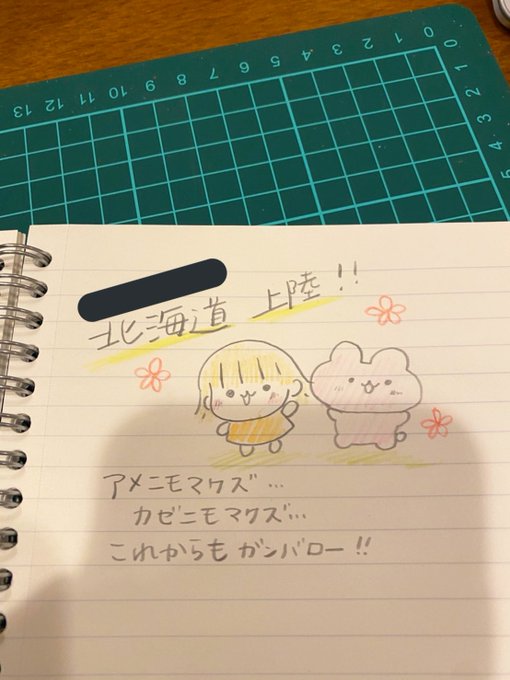 13 12 11 10 9 8 7 6 5 4 3 2 1 0
0 1 2 3 4 5
北海道 上陸!!
アメニモマケズ…
カゼニモマケズ…
これからも ガンバロー!!